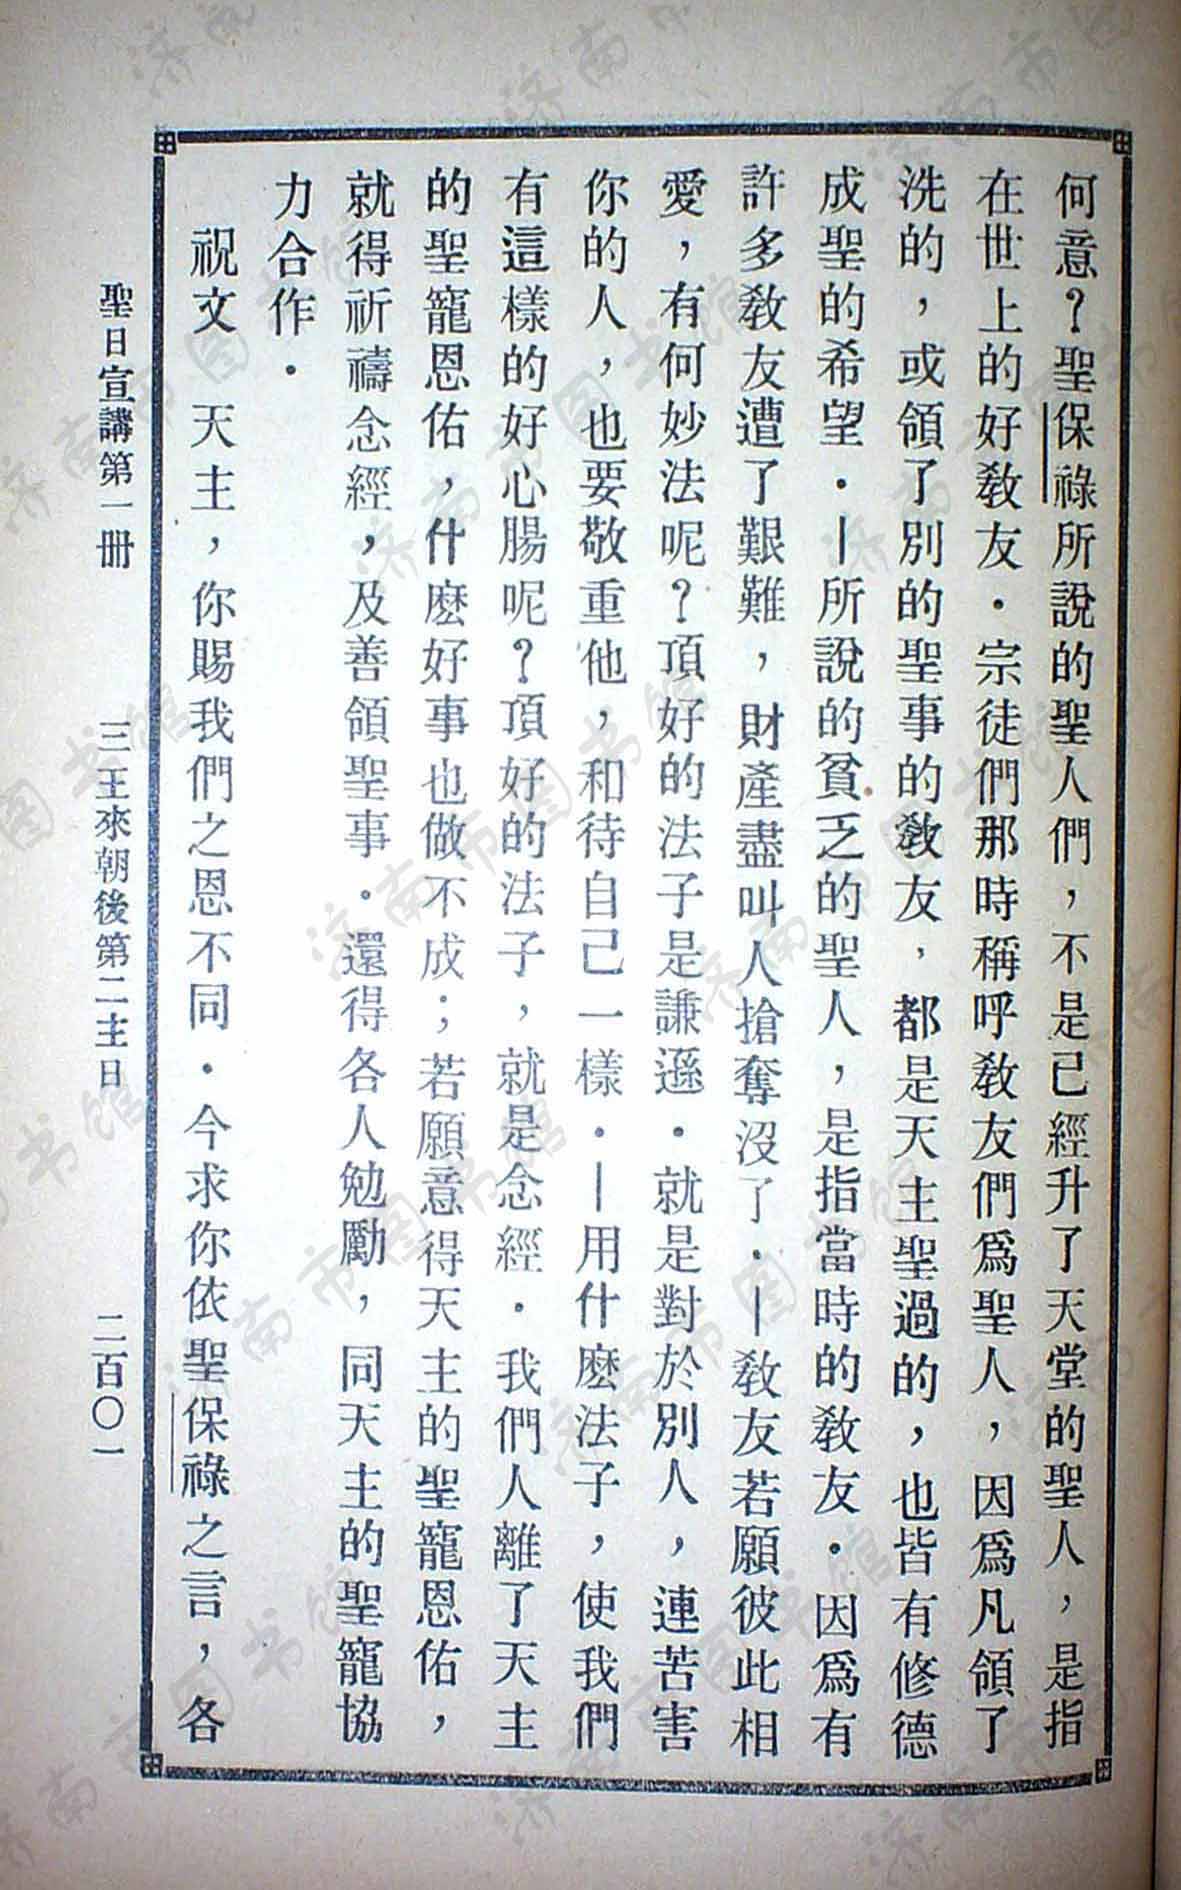 何意？聖保祿所說的聖人們，不是已經升了天堂的聖人，是指
在世上的好教友．宗徒們那時稱呼教友們爲聖人，因爲凡領了
洗的，或領了別的聖事的教友，都是天主聖過的，也皆有修德
成聖的希望．—所說的貧乏的聖人，是指當時的教友．因爲有
許多教友遭了艱難，財產盡叫人搶奪沒了．—教友若願彼此相
愛，有何妙法呢？頂好的法子是謙遜．就是對於別人，連苦害
你的人，也要敬重他，和待自己一樣．—用什麽法子，使我們
有這樣的好心腸呢？頂好的法子，就是念經．我們人離了天主
的聖寵恩佑，什麽好事也做不成；若願意得天主的聖寵恩佑，
就得祈禱念經，及善領聖事．還得各人勉勵，同天主的聖寵協
力合作．
祝文　天主，你賜我們之恩不同．今求你依聖保祿之言，各
聖日宣講第一册　三王來朝後第二主日　二百〇一
济南市图书馆